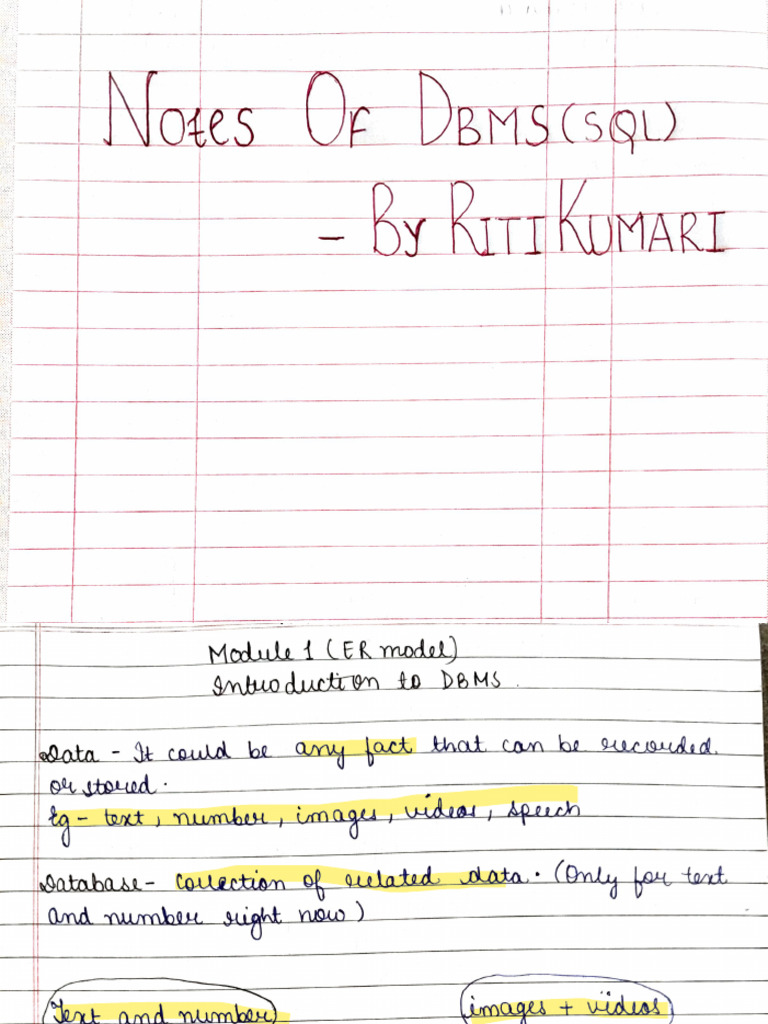 Notes Of DBMS (SQL)
- By Riti Kumari
Module 1 (ER model)
Introduction to DBMS.
Data - It could be any fact that can be recorded.
or stored.
Eg - text, number, images, videos, speech
Database - collection of related data. (Only for text
and number right now)
Text and number images + videos